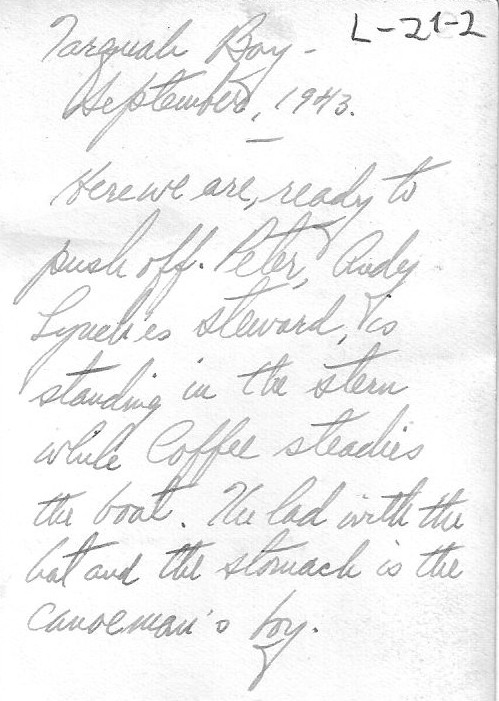 L-21-2
Tarquah Bay -
September, 1943.
Here we are, ready to
push off. Peter, Andy
Lynch's steward, is
standing in the stern
while Coffee steadies
the boat. The lad with the
hat and the stomach is the
canoeman's boy.